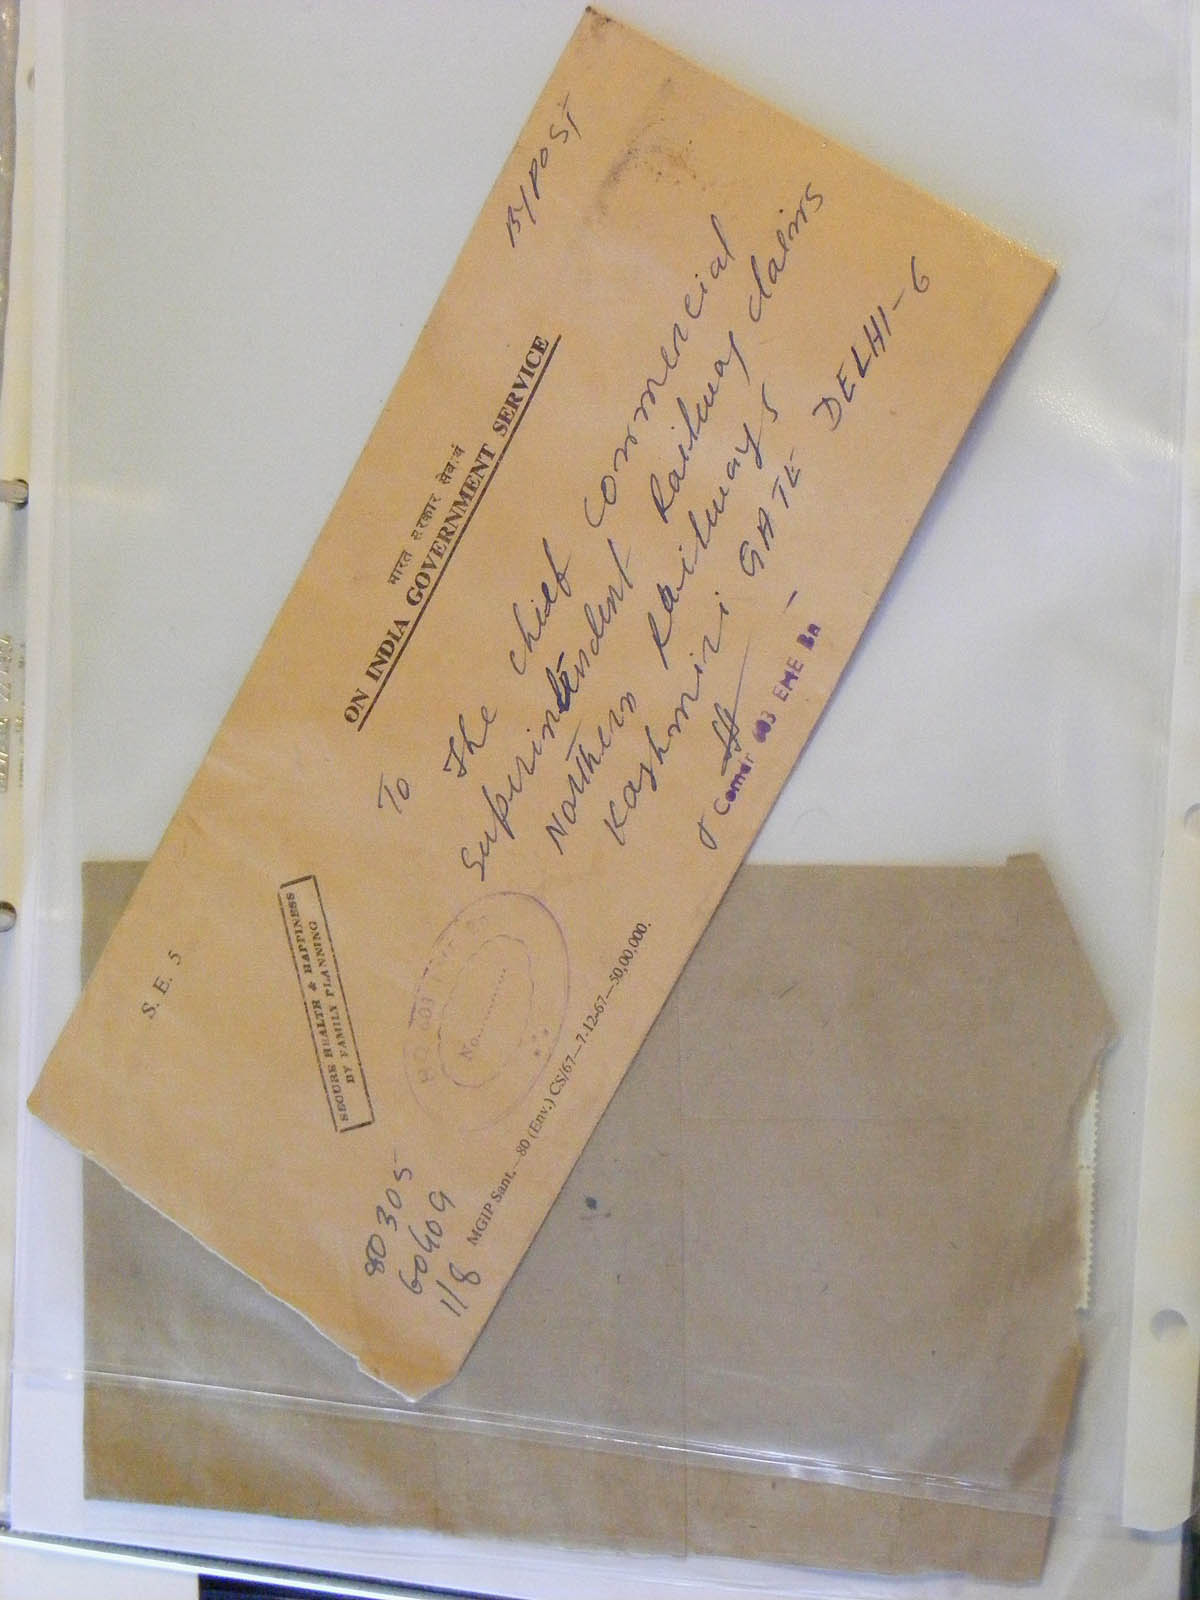 BY POST
भारत सरकार सेवार्थ
ON INDIA GOVERNMENT SERVICE
S. E. 5
SECURE HEALTH & HAPPINESS
BY FAMILY PLANNING
To
The Chief Commercial
Superintendent Railway claims
Northern Railways
Kashmiri GATE DELHI-6
Comdr 603 EME Bn
HQ 603 EME Bn
No.
80305
60409
118
MGIP Sant.—80 (Env.) CS/67—7-12-67—50,00,000.